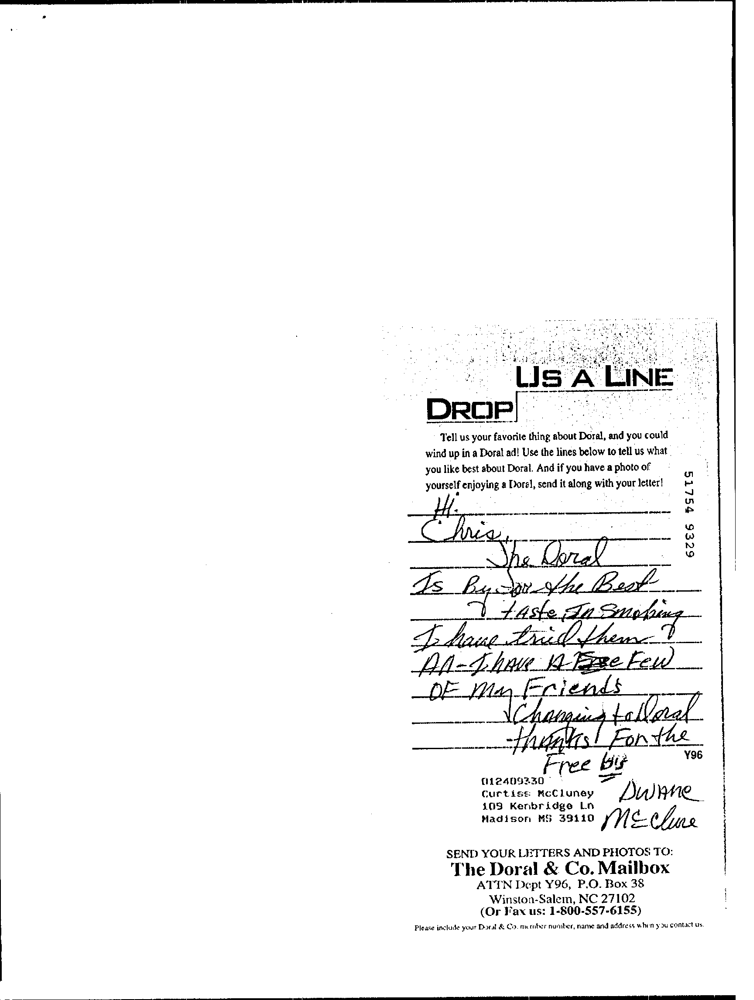 US A LINE
DROP
Tell us your favorite thing about Doral, and you could
wind up in a Doral ad! Use the lines below to tell us what
you like best about Doral. And if you have a photo of
yourself enjoying a Doral, send it along with your letter!
51754 9329
Hi.
Chris,
The Doral
Is By for the Best
taste, In Smoking
I have tried them
All-I have A Few
OF My Friends
Changing to Doral
thanks! For the
Y96
Free
012409330
Curtiss McCluney
109 Kenbridge Ln
Madison MS 39110
Dwane
McClure
SEND YOUR LETTERS AND PHOTOS TO:
The Doral & Co. Mailbox
ATTN Dept Y96, P.O. Box 38
Winston-Salem, NC 27102
(Or Fax us: 1-800-557-6155)
Please include your Doral & Co. member number, name and address when you contact us.